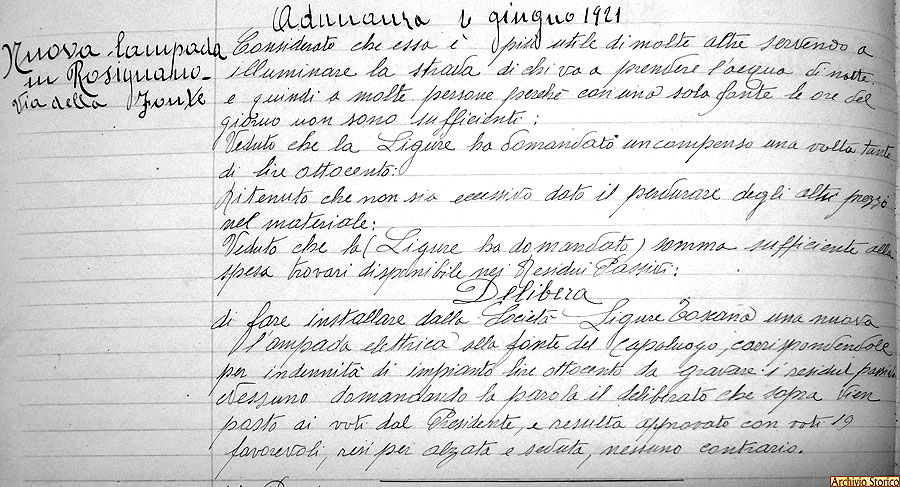 Adunanza 4 giugno 1921
Nuova lampada
in Rosignano_
Via della Fonte
Considerato che essa è più utile di molte altre servendo a
illuminare la strada di chi va a prendere l'acqua di notte
e quindi a molte persone perchè con una sola fonte le ore del
giorno non sono sufficienti:
Veduto che la Ligure ha domandato un compenso una volta tante
di lire ottocento:
Ritenuto che non sia eccessivo dato il perdurare degli alti prezzi
nel materiale:
Veduto che la (Ligure ha domandato) somma sufficiente alla
spesa trovasi disponibile nei Residui Passivi:
Delibera
di fare installare dalla Società Ligure Toscana una nuova
lampada elettrica alla fonte del Capoluogo, corrispondendole
per indennità di impianto lire ottocento da gravare i residui passivi
Nessuno domandando la parola il deliberato che sopra vien
posto ai voti dal Presidente, e resulta approvato con voti 19
favorevoli, resi per alzata e seduta, nessuno contrario.
Archivio Storico